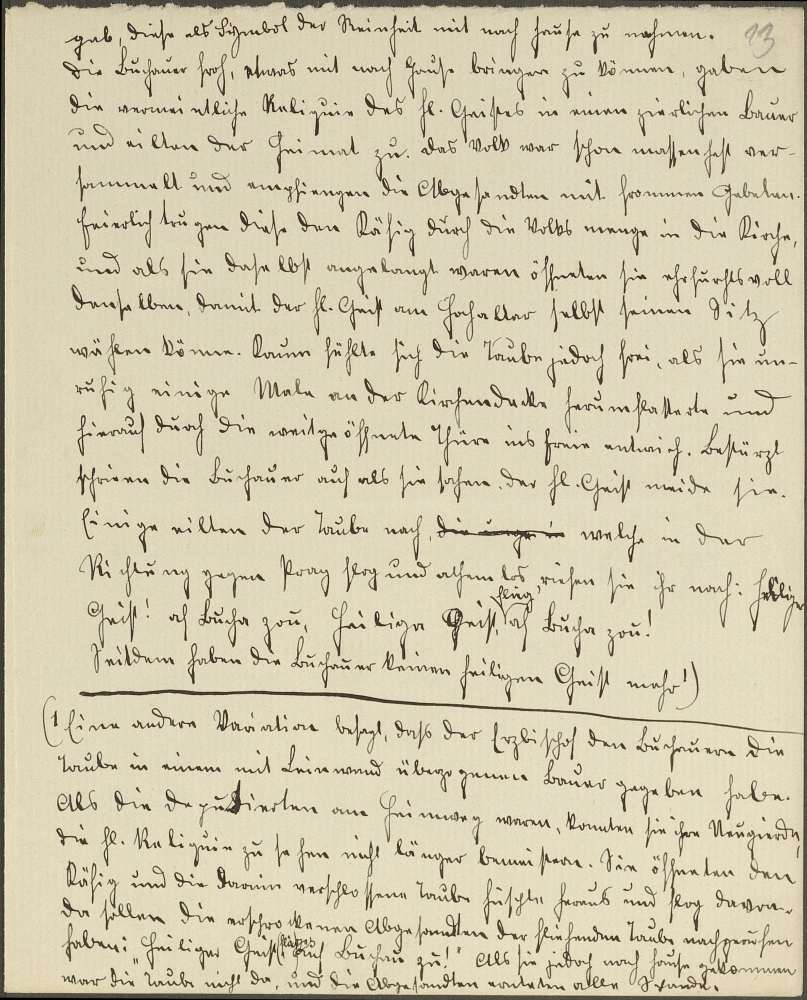 23
gab, diese als Symbol der Reinheit mit nach Hause zu nehmen.
Die Buchauer froh, etwas mit nach Hause bringen zu können, gaben
die vermeintliche Reliquie des hl. Geistes in einen zierlichen Bauer
und eilten der Heimat zu. Das Volk war schon massenhaft ver-
sammelt und empfiengen die Abgesandten mit frommen Gebeten.
Feierlich trugen diese den Käfig durch die Volksmenge in die Kirche,
und als sie daselbst angelangt waren öffneten sie ehrfurchtsvoll
denselben, damit der hl. Geist am Hochaltar selbst seinen Sitz
wählen könne. Kaum fühlte sich die Taube jedoch frei, als sie un-
ruhig einige Male an der Kirchendecke herumflatterte und
hierauf durch die weitgeöffnete Thüre ins Freie entwich. Bestürzt
schrieen die Buchauer auf als sie sahen, der hl. Geist meide sie.
Einige eilten der Taube nach, welche in der
Richtung gegen Prag flog und athemlos riefen sie ihr nach: Heiliger
Geist! af Bucha zou, Heiliga Geist, flieg af Bucha zou!
Seitdem haben die Buchauer keinen heiligen Geist mehr!)
(1 Eine andere Variation besagt, dass der Erzbischof den Buchauern die
Taube in einem mit Leinwand überzogenen Bauer gegeben habe.
Als die Deputierten am Heimweg waren, konnten sie ihre Neugierde,
die hl. Reliquie zu sehen nicht länger bemeistern. Sie öffneten den
Käfig und die darin verschlossene Taube huschte heraus und flog davon.
Da sollen die erschrockenen Abgesandten der fliehenden Taube nachgerufen
haben: „Heiliger Geist! auf Buchau zu!" Als sie jedoch nach Hause gekommen
war die Taube nicht da, und die Abgesandten ernteten alle Schande.